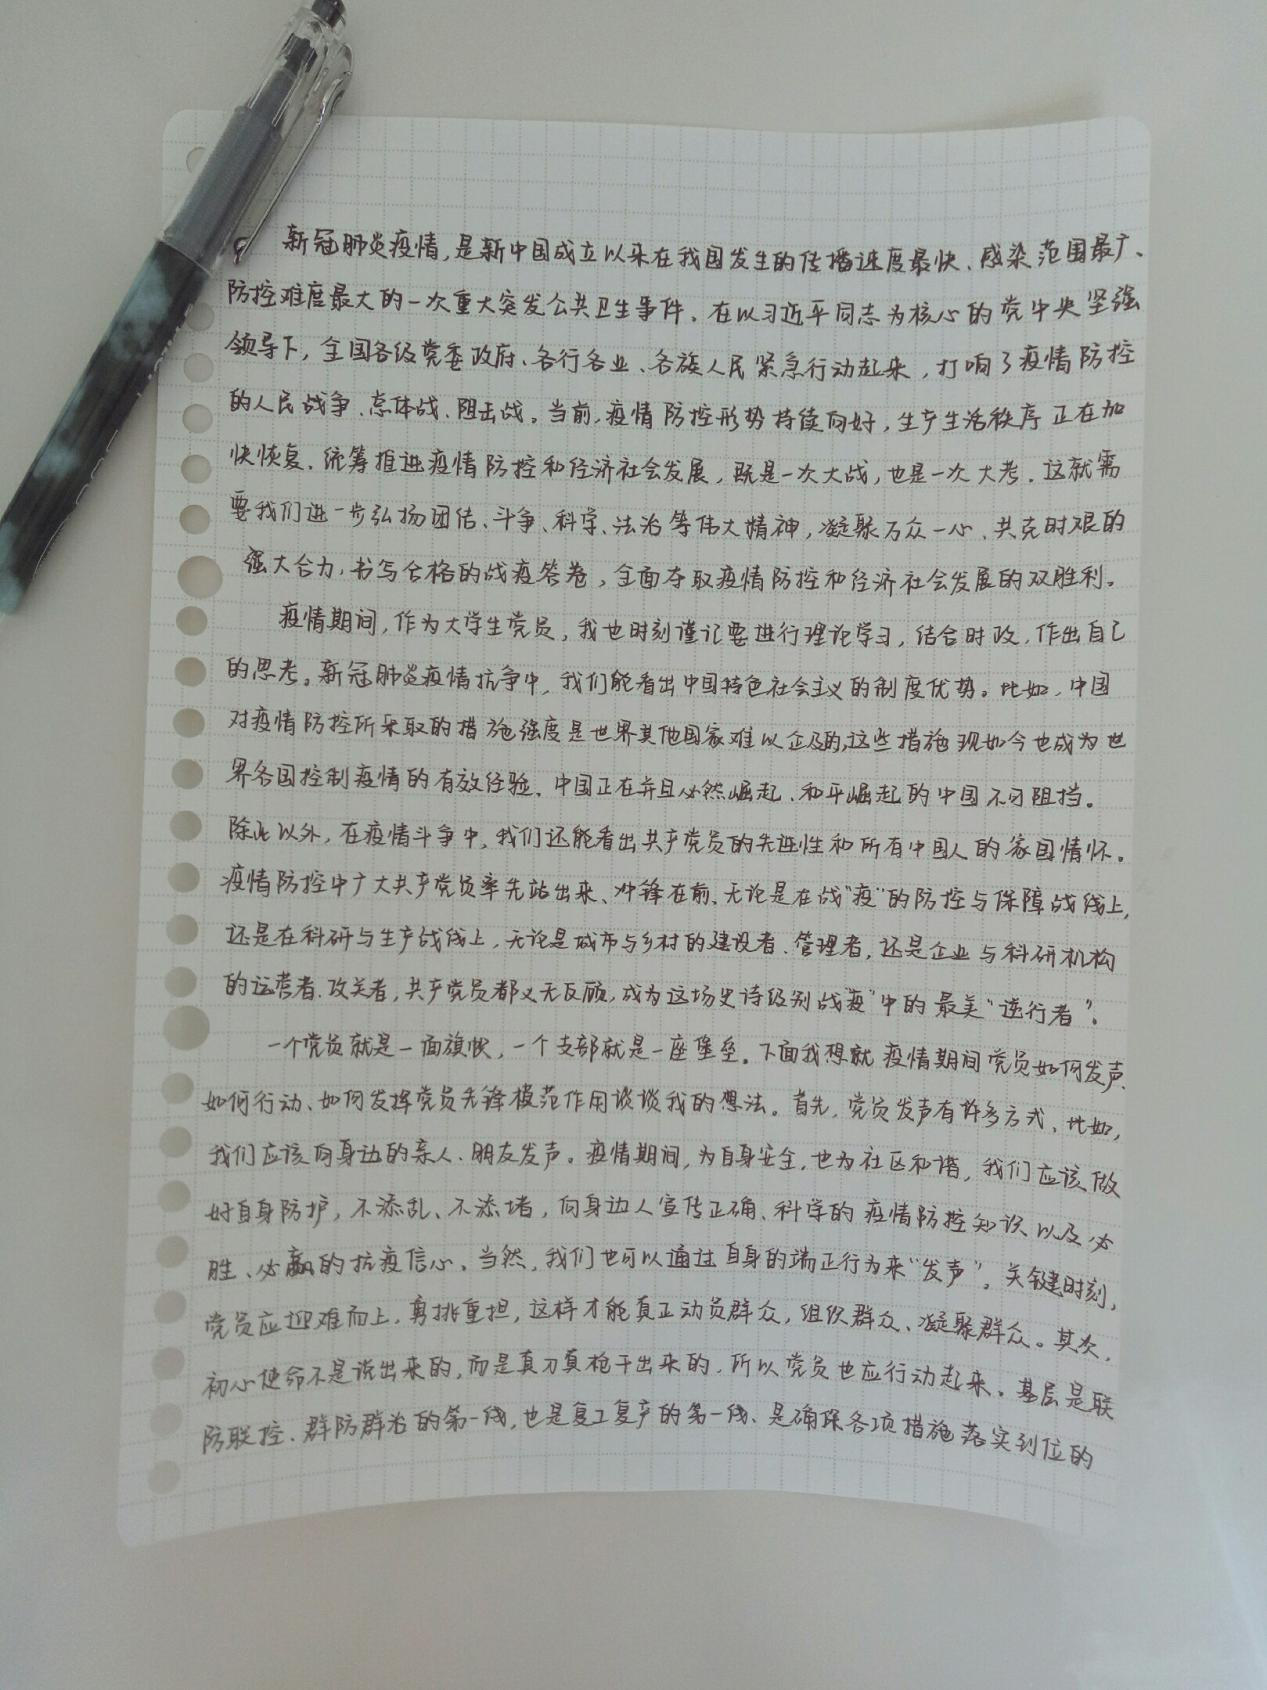 新冠肺炎疫情,是新中国成立以来在我国发生的传播速度最快、感染范围最广、
防控难度最大的一次重大突发公共卫生事件。在以习近平同志为核心的党中央坚强
领导下,全国各级党委政府、各行各业、各族人民紧急行动起来,打响了疫情防控
的人民战争、总体战、阻击战。当前,疫情防控形势持续向好,生产生活秩序正在加
快恢复。统筹推进疫情防控和经济社会发展,既是一次大战,也是一次大考。这就需
要我们进一步弘扬团结、斗争、科学、法治等伟大精神,凝聚万众一心、共克时艰的
强大合力,书写合格的战疫答卷,全面夺取疫情防控和经济社会发展的双胜利。
疫情期间,作为大学生党员,我也时刻谨记要进行理论学习,结合时政,作出自己
的思考。新冠肺炎疫情抗争中,我们能看出中国特色社会主义的制度优势。比如,中国
对疫情防控所采取的措施强度是世界其他国家难以企及的,这些措施现如今也成为世
界各国控制疫情的有效经验。中国正在并且必然崛起,和平崛起的中国不可阻挡。
除此以外,在疫情斗争中,我们还能看出共产党员的先进性和所有中国人的家国情怀。
疫情防控中广大共产党员率先站出来、冲锋在前,无论是在战“疫”的防控与保障战线上,
还是在科研与生产战线上,无论是城市与乡村的建设者、管理者,还是企业与科研机构
的运营者、攻关者,共产党员都义无反顾,成为这场史诗级别战“疫”中的最美“逆行者”。
一个党员就是一面旗帜,一个支部就是一座堡垒。下面我想就疫情期间党员如何发声、
如何行动、如何发挥党员先锋模范作用谈谈我的想法。首先,党员发声有许多方式,比如,
我们应该向身边的亲人、朋友发声。疫情期间,为自身安全,也为社区和谐,我们应该做
好自身防护,不添乱、不添堵,向身边人宣传正确、科学的疫情防控知识以及必
胜、必赢的抗疫信心。当然,我们也可以通过自身的端正行为来“发声”。关键时刻,
党员应迎难而上,勇挑重担,这样才能真正动员群众,组织群众、凝聚群众。其次,
初心使命不是说出来的,而是真刀真枪干出来的,所以党员也应行动起来。基层是联
防联控、群防群治的第一线,也是复工复产的第一线、是确保各项措施落实到位的